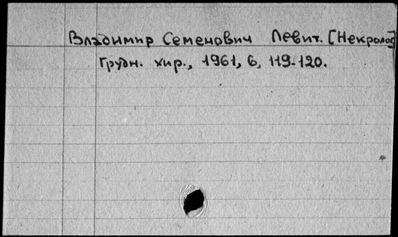 Владимир Семенович Левит. [Некролог]
Грудн. хир., 1961, 6, 119-120.